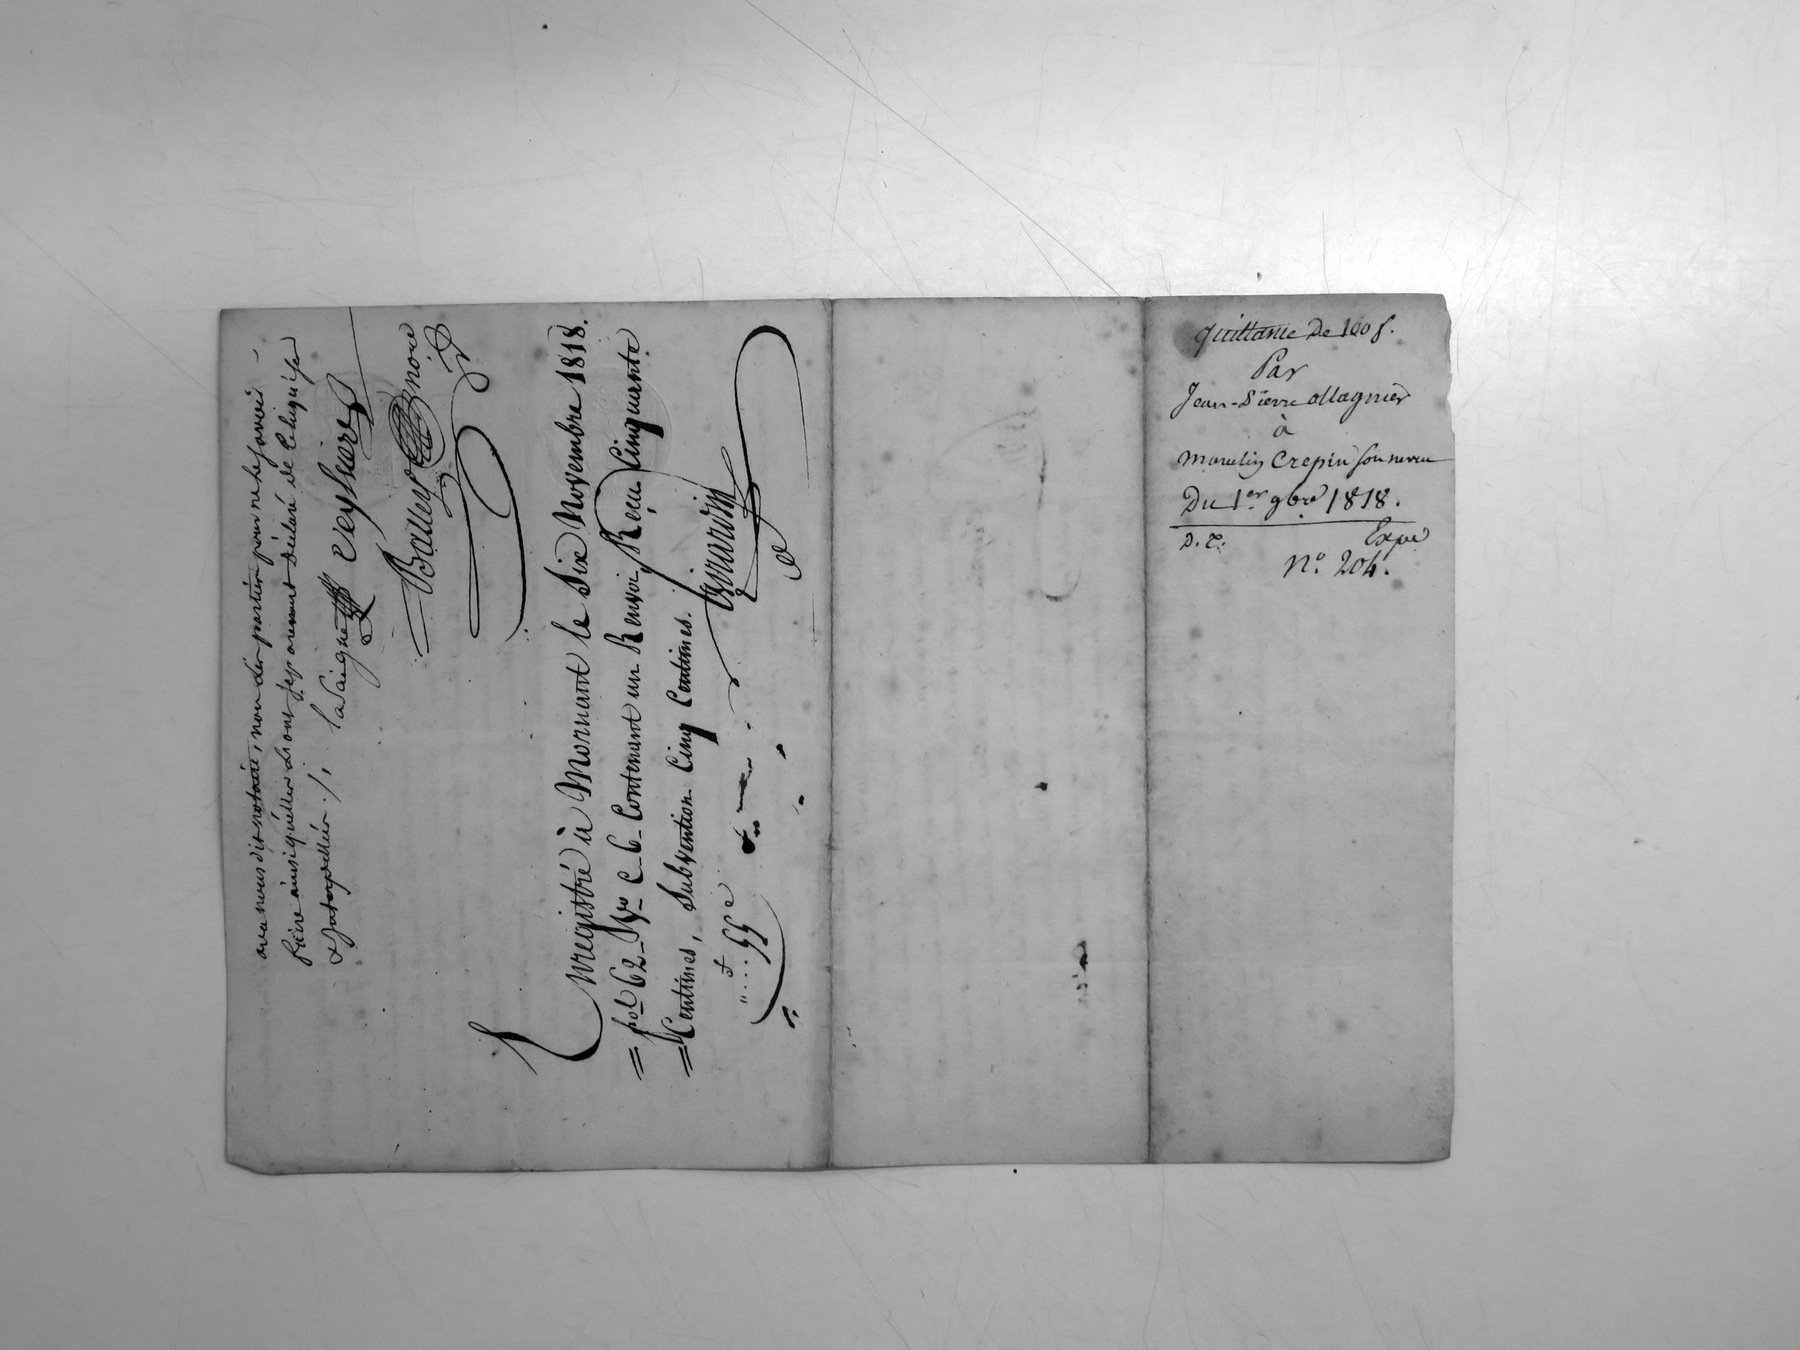 avec nous dit notaire, non les parties pour ne le savoir
faire ainsi qu'elles ont separement déclaré de ce enquises
& interpellées ./.
Lasaigne Veyssiere
Balley nore
Enregistré à Mornant le Six Novembre 1818.
fol 62 Vo C. 6 Contenant un Renvoi, Reçu Cinquante
Centimes, Subvention Cinq Centimes.
55 c
Quittance De 100 f.
Par
Jean-Pierre Ollagnier
à
Marcelin Crepin son neveu
Du 1er 9bre 1818.
D. E. Expé
No. 204.